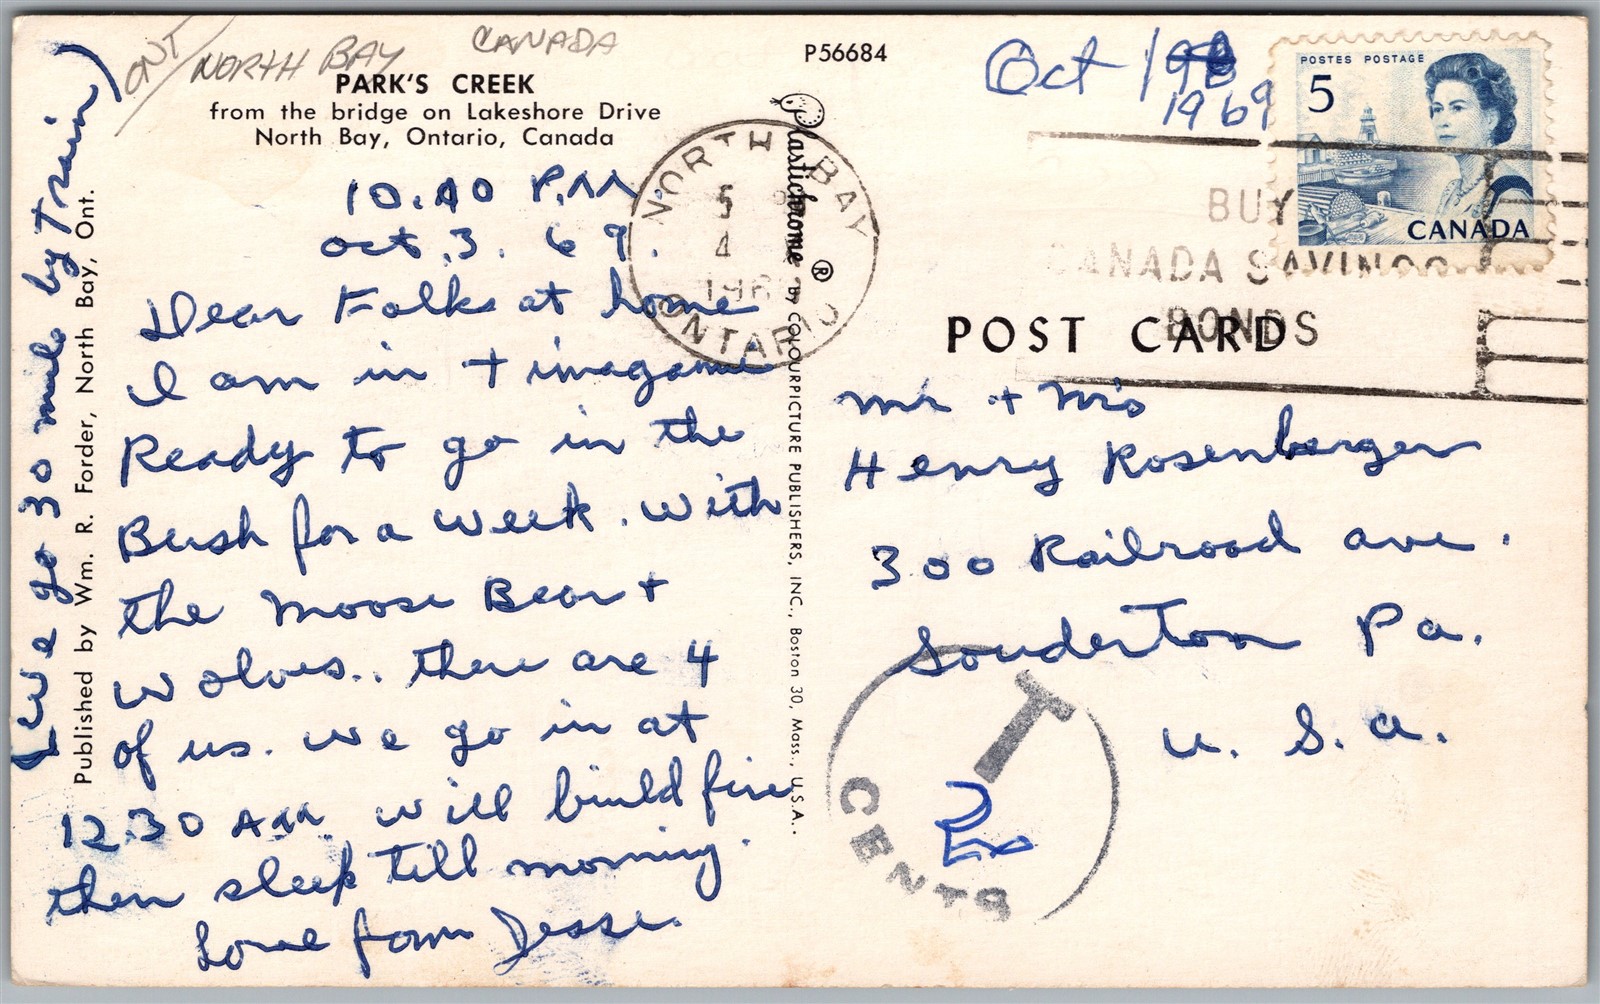 ONT/ NORTH BAY CANADA
PARK'S CREEK
from the bridge on Lakeshore Drive
North Bay, Ontario, Canada
P56684
Oct 19
1969
POSTES POSTAGE
5
CANADA
NORTH BAY
5
4
196
ONTARIO
BUY
CANADA SAVINGS
BONDS
POST CARD
Plastichrome ® BY COLOURPICTURE PUBLISHERS, INC., Boston 30, Mass., U.S.A.
Published by Wm. R. Forder, North Bay, Ont.
10.40 P.M.
Oct. 3. 69.
Dear Folks at home
I am in + imagame
Ready to go in the
Bush for a week. With
the Moose Bear +
wolves.. there are 4
of us. we go in at
12.30 AM. will biuld fire
then sleep till morning.
Love from Jesse.
(we go 30 mile by train)
Mr + Mrs
Henry Rosenberger
300 Railroad ave.
Souderton Pa.
U. S. A.
T
CENTS